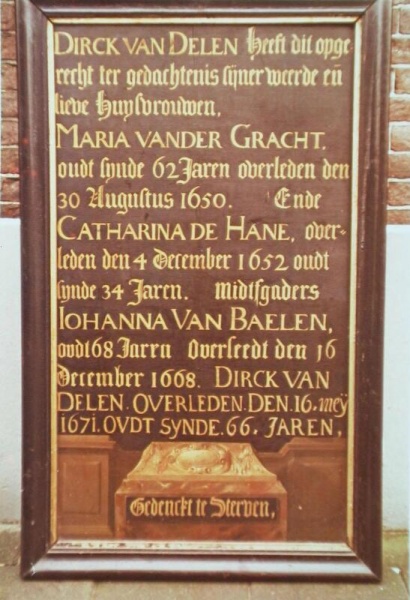 DIRCK VAN DELEN Heeft dit opge-
recht ter gedachtenis sijner weerde eñ
lieve Huysvrouwen.
MARIA VANDER GRACHT.
oudt synde 62 Jaren overleden den
30 Augustus 1650. Ende
CATHARINA DE HANE, over-
leden den 4 December 1652 oudt
synde 34 Jaren. Midtsgaders
IOHANNA VAN BAELEN,
oudt 68 Jaren Overleedt den 16
December 1668. DIRCK VAN
DELEN. OVERLEDEN. DEN. 16. meÿ
1671. OVDT SYNDE. 66. JAREN,
Gedenckt te Sterven,